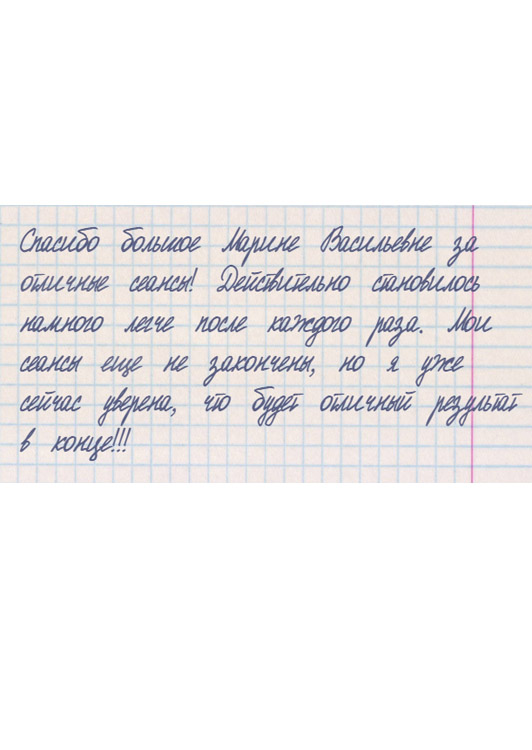 Спасибо большое Марине Васильевне за
отличные сеансы! Действительно становилось
намного легче после каждого раза. Мои
сеансы еще не закончены, но я уже
сейчас уверена, что будет отличный результат
в конце!!!